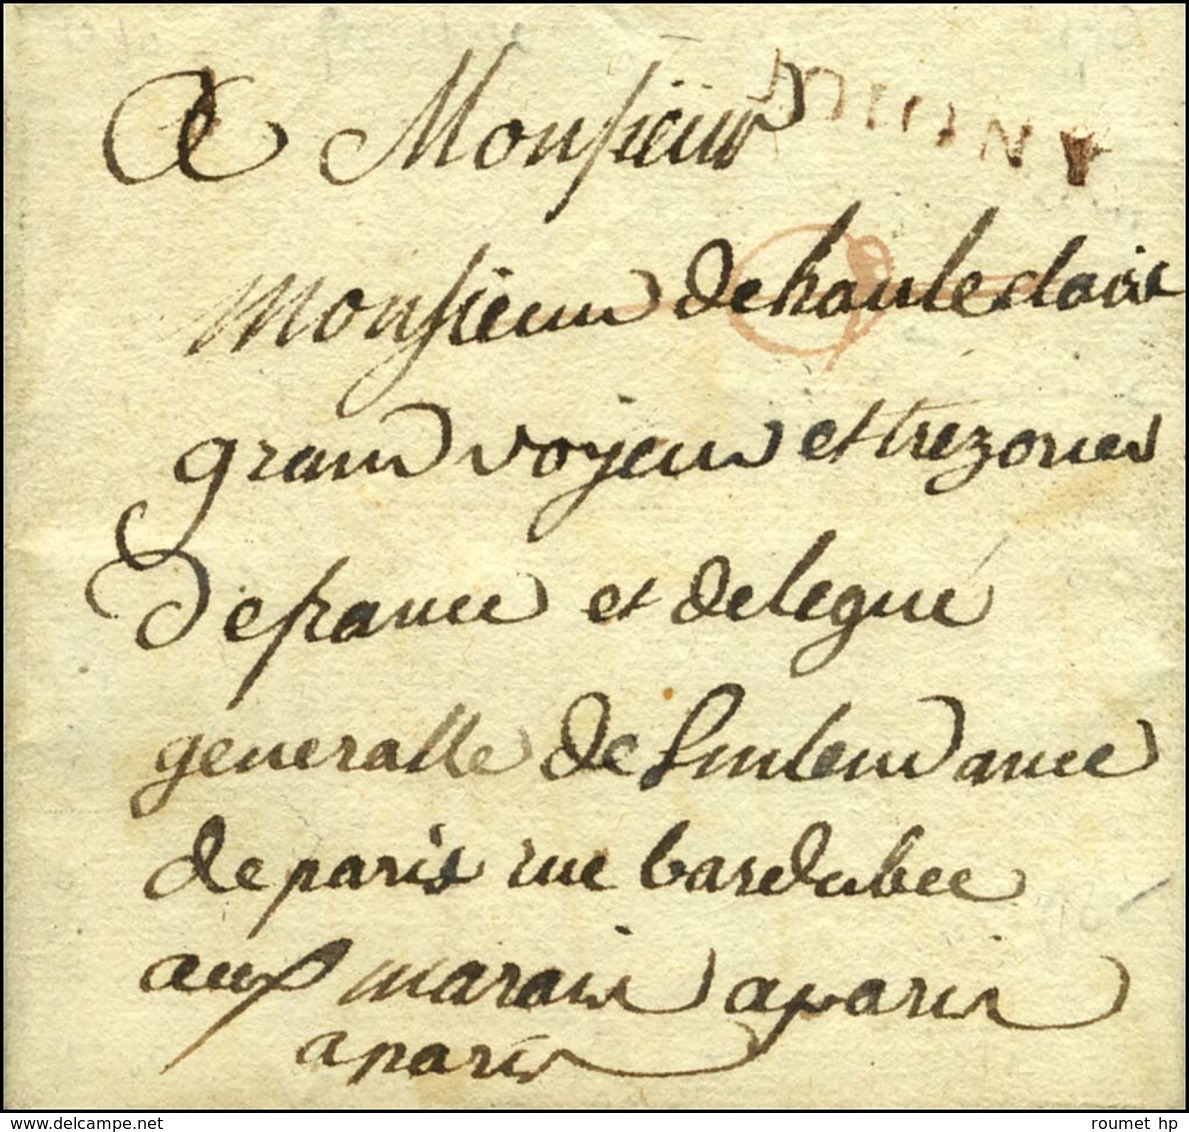 A Monsieur
ANTONY
Monsieur de hauteclaire
grand voyeur et trezorier
de france et delegué
generalle de Lintendance
de paris rue bardubec
aux marais a paris
a paris
roumet hp